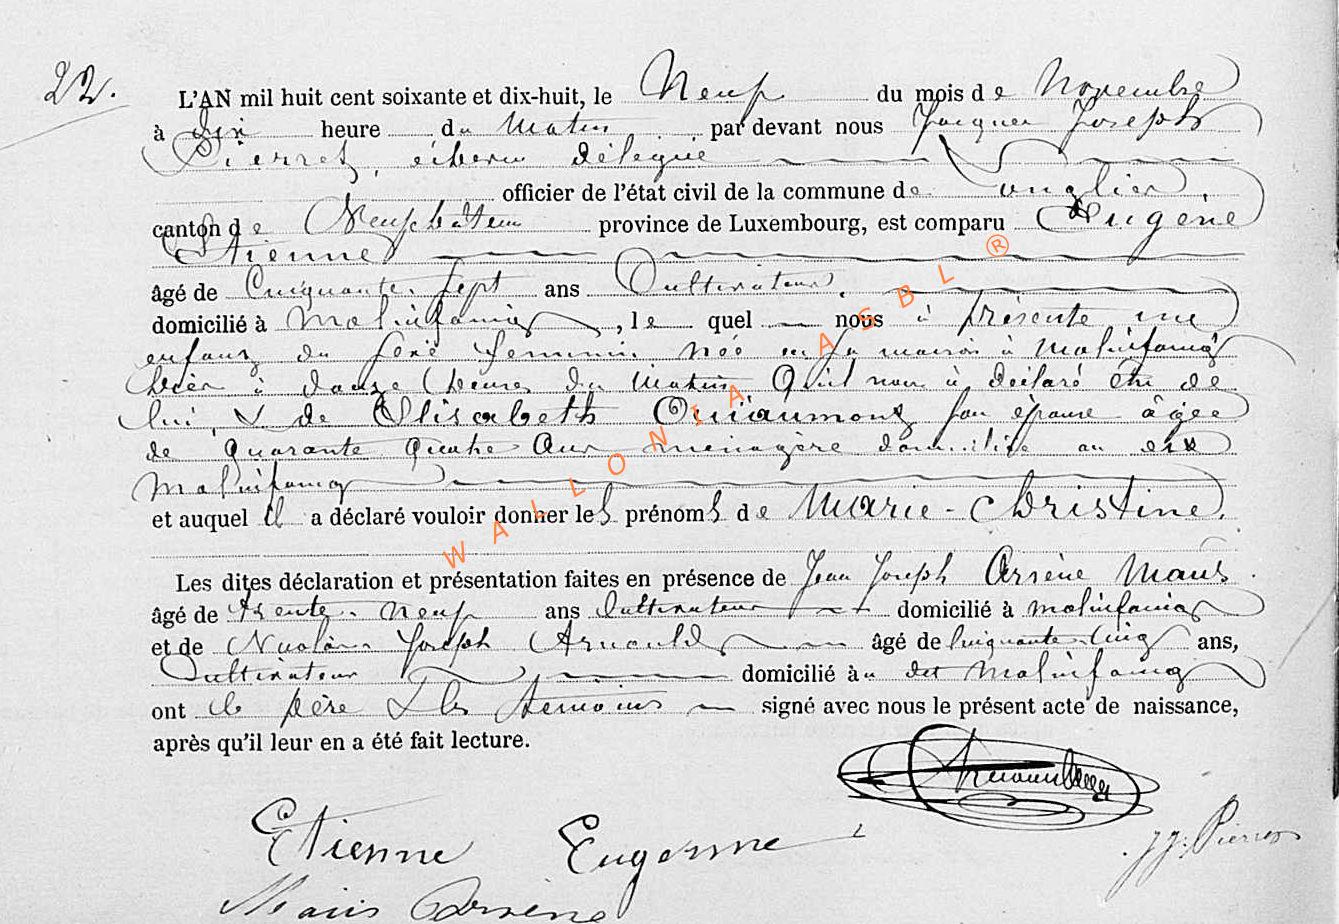 22.
L'AN mil huit cent soixante et dix-huit, le Neuf du mois de Novembre
à Dix heure du Matin par devant nous Jacques Joseph
Pierret, échevin délégué
officier de l'état civil de la commune de Longlier,
canton de Neufchâteau province de Luxembourg, est comparu Eugène
Etienne
âgé de Cinquante Sept ans Cultivateur,
domicilié à Molinfaing, le quel nous à présenté une
enfant du sexe feminin née en sa maison à Molinfaing
hier à douze heures du Matin Qu'il nous à déclaré être de
lui, & de Elisabeth son épouse âgée
de quarante quatre ans ménagère domiciliée au dit
Molinfaing
et auquel il a déclaré vouloir donner les prénoms de Marie-Christine.
Les dites déclaration et présentation faites en présence de Jean Joseph Arsène Maus
âgé de trente neuf ans Cultivateur domicilié à Molinfaing
et de Nicolas Joseph Arnould âgé de Cinquante Cinq ans,
Cultivateur domicilié au dit Molinfaing
ont le père & les temoins signé avec nous le présent acte de naissance,
après qu'il leur en a été fait lecture.
Etienne Eugenne
JJ. Pierret
Maus Arsène
WALLONIA ASBL ®